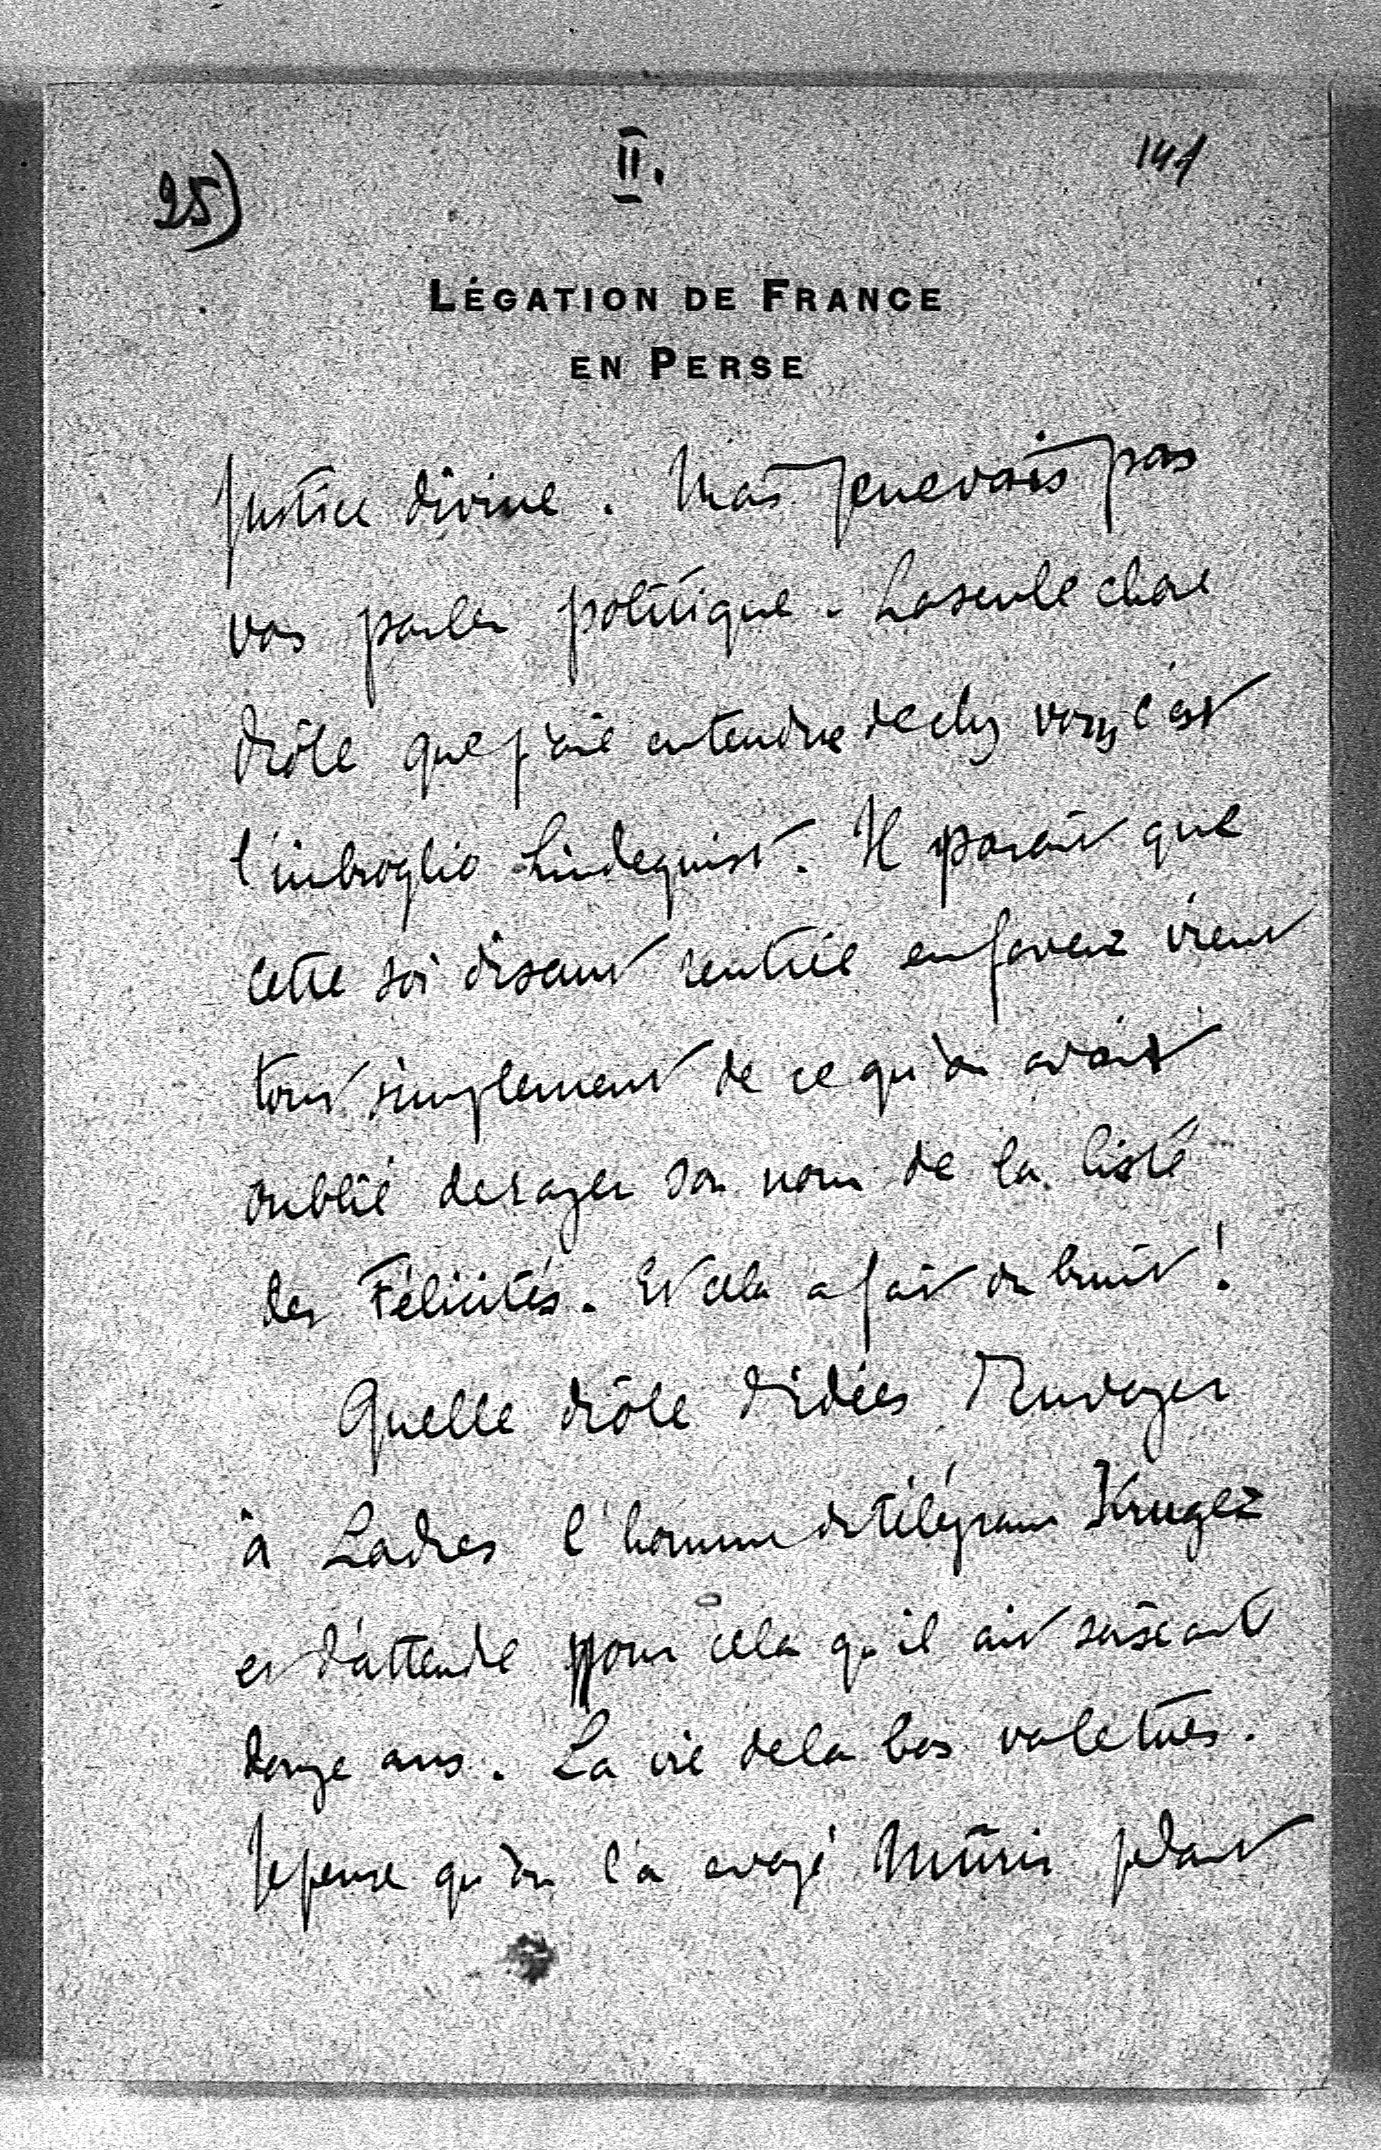 25)
II.
141
LÉGATION DE FRANCE
EN PERSE
Justice divine. Mais je ne vais pas
vous parler politique. La seule chose
drôle que j'aie entendue de chez vous, c'est
l'imbroglio Lindequist. Il parait que
cette soi disant rentrée en faveur vient
tout simplement de ce qu'on avait
oublié de rayer son nom de la liste
des Félicités. Et cela a fait du bruit!
Quelle drôle d'idées d'envoyer
à Londres l'homme du télégramme Kruger
et d'attendre pour cela qu'il ait soixante
douze ans. La vie de là bas vale tues.
Je pense qu'on l'a envoyé pendant